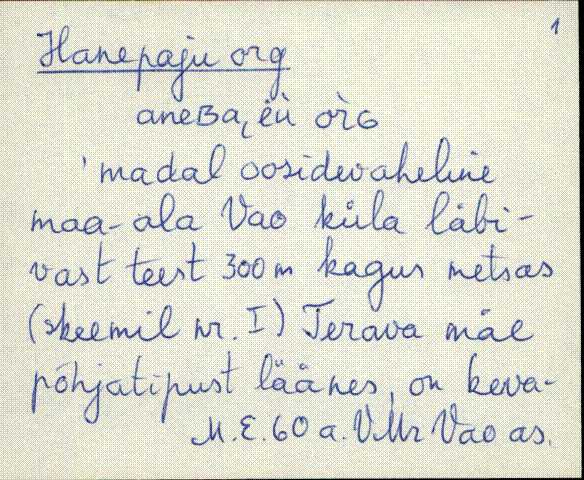 1
Hanepaju org
aneʙa͔ i̯ėù òrG
'madal oosidevaheline
maa-ala Vao küla läbi-
vast teest 300 m kagus metsas
(skeemil nr. I) Terava mäe
põhjatipust läänes, on keva-
M.E. 60 a. VMr Vao as.